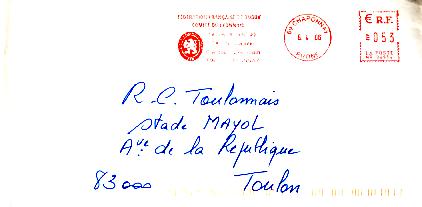 FEDERATION FRANÇAISE DE RUGBY
COMITE DU LYONNAIS
69 CHAPONNAY
6.4.06
RHONE
€ R.F.
053
LA POSTE
R. C. Toulonnais
Stade MAYOL
Ave de la République
83000 Toulon